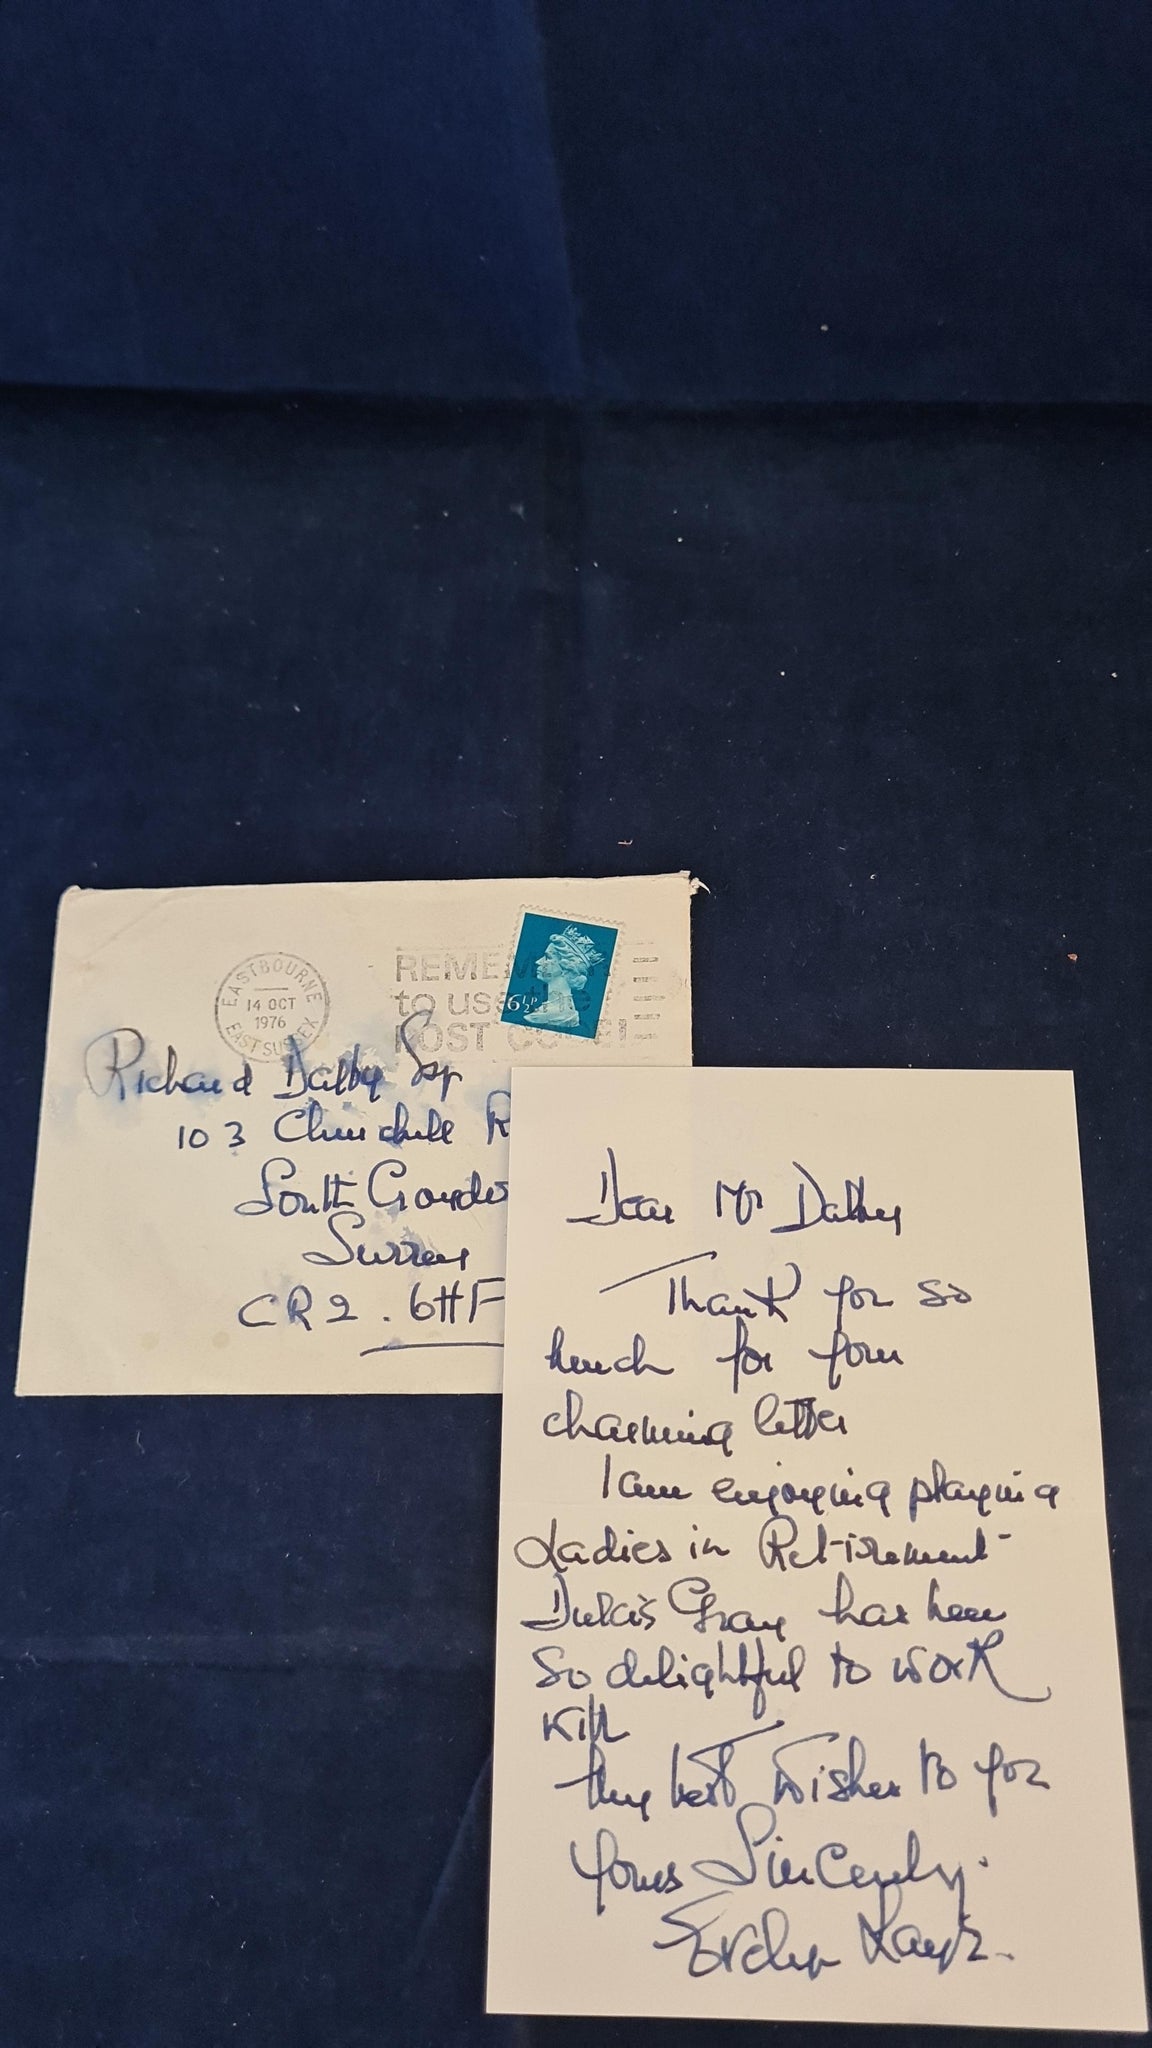 EASTBOURNE
14 OCT
1976
EAST SUSSEX
REMEMBER
to use the
POST CODE!
6½P
Richard Dalby Esq
103 Churchill R
South Croydo
Surrey
CR2. 6HF
Dear Mr Dalby
Thank you so
much for your
charming letter
I am enjoying playing
Ladies in Retirement -
Dulcie Gray has been
so delightful to work
with
My best wishes to you
Yours Sincerely.
Evelyn Laye.